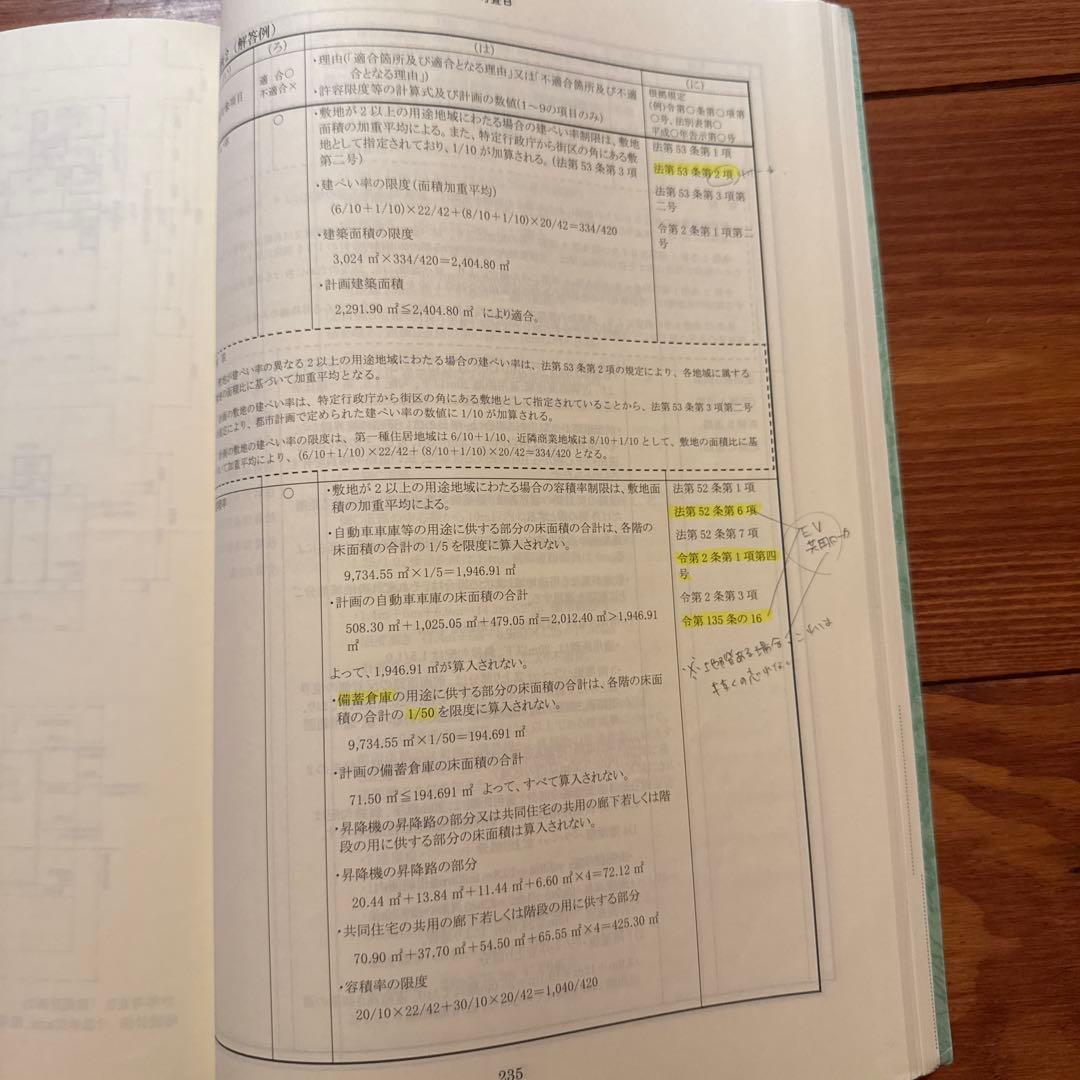 (解答例)
(ろ)
適 合○
不適合×
(は)
・理由(「適合箇所及び適合となる理由」又は「不適合箇所及び不適
合となる理由」)
・許容限度等の計算式及び計画の数値(1～9の項目のみ)
(に)
根拠規定
(例)令第○条第○項第
○号、法別表第○
平成○年告示第○号
○
・敷地が2以上の用途地域にわたる場合の建ぺい率制限は、敷地
面積の加重平均による。また、特定行政庁から街区の角にある敷
地として指定されており、1/10が加算される。(法第53条第3項
第二号)
・建ぺい率の限度(面積加重平均)
(6/10+1/10)×22/42+(8/10+1/10)×20/42=334/420
・建築面積の限度
3,024 ㎡×334/420=2,404.80 ㎡
・計画建築面積
2,291.90 ㎡≦2,404.80 ㎡ により適合。
法第53条第1項
法第53条第2項
法第53条第3項第
二号
令第2条第1項第二
号
建ぺい率の異なる2以上の用途地域にわたる場合の建ぺい率は、法第53条第2項の規定により、各地域に属する
の面積比に基づいて加重平均となる。
の敷地の建ぺい率は、特定行政庁から街区の角にある敷地として指定されていることから、法第53条第3項第二号
により、都市計画で定められた建ぺい率の数値に1/10が加算される。
の敷地の建ぺい率の限度は、第一種住居地域は6/10+1/10、近隣商業地域は8/10+1/10として、敷地の面積比に基
いて加重平均により、(6/10+1/10)×22/42+(8/10+1/10)×20/42=334/420となる。
○
・敷地が2以上の用途地域にわたる場合の容積率制限は、敷地面
積の加重平均による。
・自動車車庫等の用途に供する部分の床面積の合計は、各階の
床面積の合計の1/5を限度に算入されない。
9,734.55 ㎡×1/5=1,946.91 ㎡
・計画の自動車車庫の床面積の合計
508.30 ㎡+1,025.05 ㎡+479.05 ㎡=2,012.40 ㎡>1,946.91
㎡
よって、1,946.91 ㎡が算入されない。
・備蓄倉庫の用途に供する部分の床面積の合計は、各階の床面
積の合計の1/50を限度に算入されない。
9,734.55 ㎡×1/50=194.691 ㎡
・計画の備蓄倉庫の床面積の合計
71.50 ㎡≦194.691 ㎡ よって、すべて算入されない。
・昇降機の昇降路の部分又は共同住宅の共用の廊下若しくは階
段の用に供する部分の床面積は算入されない。
・昇降機の昇降路の部分
20.44 ㎡+13.84 ㎡+11.44 ㎡+6.60 ㎡×4=72.12 ㎡
・共同住宅の共用の廊下若しくは階段の用に供する部分
70.90 ㎡+37.70 ㎡+54.50 ㎡+65.55 ㎡×4=425.30 ㎡
・容積率の限度
20/10×22/42+30/10×20/42=1,040/420
法第52条第1項
法第52条第6項
法第52条第7項
令第2条第1項第四
号
令第2条第3項
令第135条の16
EV
235